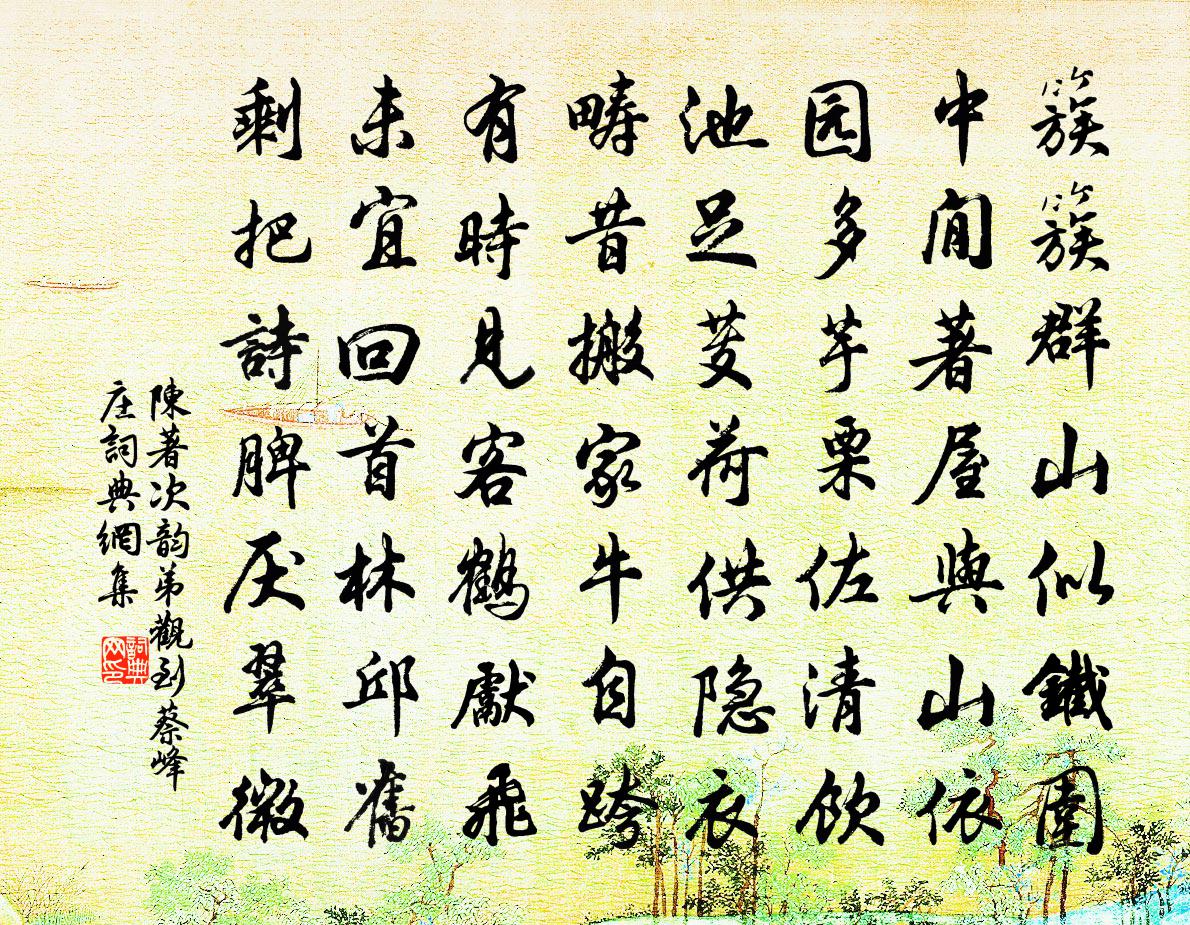 簇簇群山似鐵圍
中閒著屋與山依
园多芋栗佐清飲
池足芰荷供隐衣
疇昔搬家牛自跨
有時見客鶴獻飛
未宜回首林邱舊
剩把詩脾厌翠微
陳著次韵弟觀到蔡峰
庄詞典網集
詞典网印